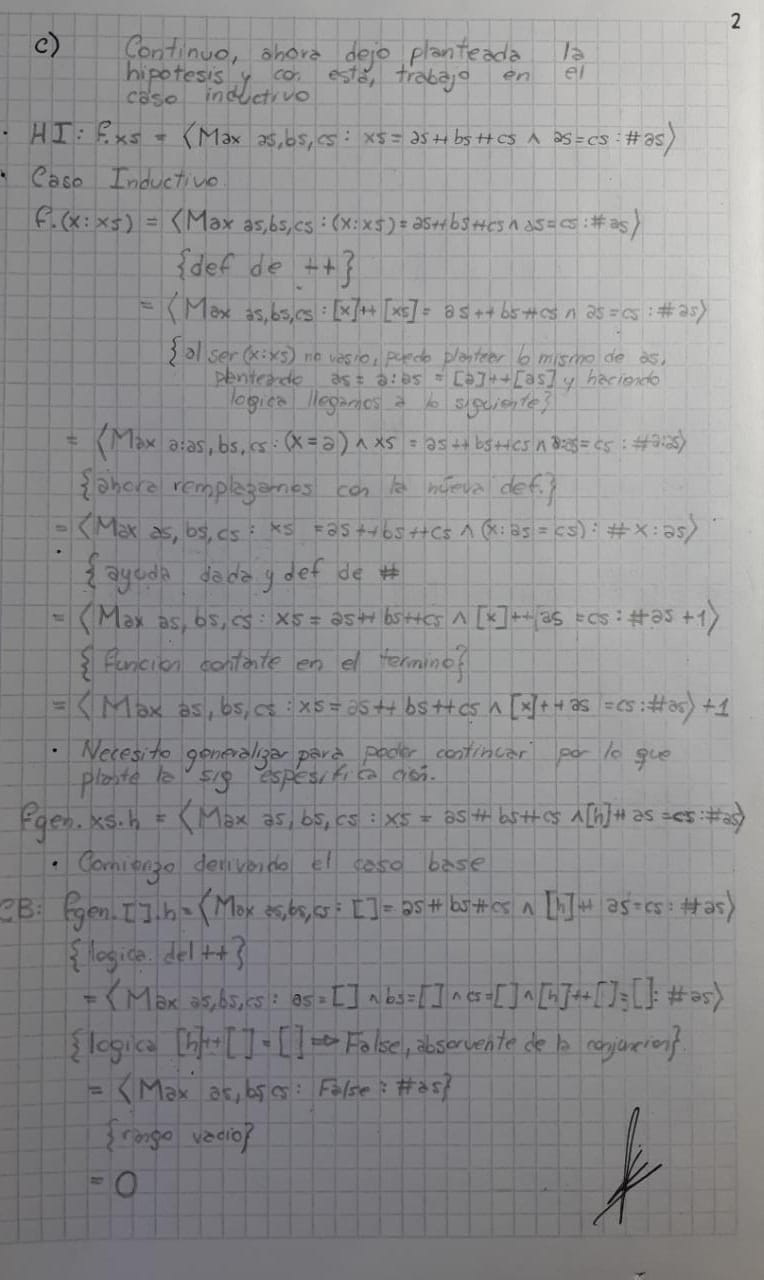 2
c) Continuo, ahora dejo planteada la
hipotesis y con está, trabajo en el
caso inductivo
· HI: f.xs = ⟨Max as,bs,cs : xs = as ++ bs ++ cs ∧ as = cs : #as⟩
· Caso Inductivo.
f.(x:xs) = ⟨Max as,bs,cs : (x:xs) = as ++ bs ++ cs ∧ as = cs : #as⟩
{def de ++}
= ⟨Max as,bs,cs : [x] ++ [xs] = as ++ bs ++ cs ∧ as = cs : #as⟩
{al ser (x:xs) no vasio, puedo plantear lo mismo de as,
planteando as = a:as = [a] ++ [as] y haciendo
logica llegamos a lo siguiente}
= ⟨Max a:as, bs, cs : (x=a) ∧ xs = as ++ bs ++ cs ∧ a:as = cs : #a:as⟩
{ahora remplazamos con la nueva def.}
= ⟨Max as, bs, cs : xs = as ++ bs ++ cs ∧ (x:as = cs) : # x:as⟩
{ayuda dada y def de #
= ⟨Max as, bs, cs : xs = as ++ bs ++ cs ∧ [x] ++ as = cs : #as +1⟩
{funcion contante en el termino}
= ⟨Max as, bs, cs : xs = as ++ bs ++ cs ∧ [x] ++ as = cs : #as⟩ +1
· Necesito generalizar para poder continuar por lo que
plante la sig espesificación.
fgen.xs.h = ⟨Max as, bs, cs : xs = as ++ bs ++ cs ∧ [h] ++ as = cs : #as⟩
· Comienzo derivando el caso base
CB: fgen.[].h = ⟨Max as,bs,cs : [] = as ++ bs ++ cs ∧ [h] ++ as = cs : #as⟩
{logica del ++}
= ⟨Max as,bs,cs : as = [] ∧ bs = [] ∧ cs = [] ∧ [h] ++ [] = [] : #as⟩
{logica [h] ++ [] = [] ⇒ False, absorvente de la conjuncion}
= ⟨Max as, bs cs : False : #as}
{rango vacio}
= 0